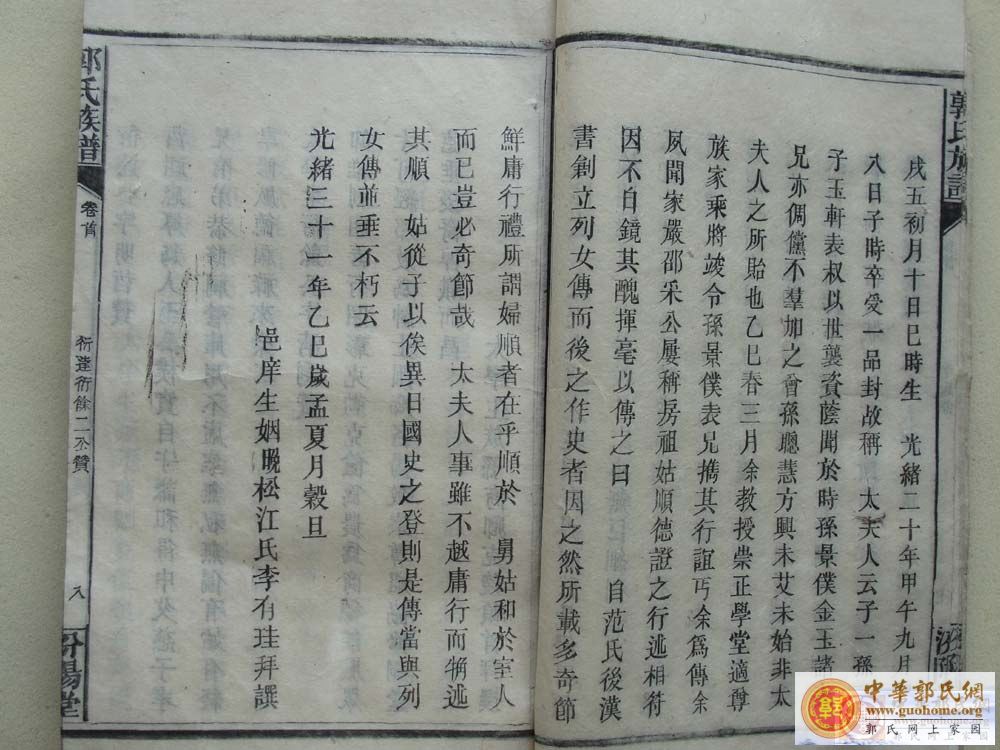 郭氏族譜
戌五初月十日巳時生　光緒二十年甲午九月
八日子時卒受一品封故稱　太夫人云子一孫
子玉軒表叔以世襲資蔭聞於時孫景僕金玉諸
兄亦倜儻不羣加之會孫聰慧方興未艾未始非太
夫人之所貽也乙巳春三月余教授崇正學堂適尊
族家乘將竣令孫景僕表兄携其行誼丐余爲傳余
夙聞家嚴邵采公屢稱房祖姑順德證之行述相符
因不自鏡其醜揮毫以傳之曰　自范氏後漢
書創立列女傳而後之作史者因之然所載多奇節
鮮庸行禮所謂婦順者在乎順於　舅姑和於室人
而已豈必奇節哉　太夫人事雖不越庸行而犓述
其順　姑從子以俟異日國史之登則是傳當與列
女傳並垂不朽云
光緒三十一年乙巳歲孟夏月穀旦
邑庠生姻晚松江氏李有珪拜譔
郭氏族譜
卷首
衍逵衍餘二公贊
八
汾陽堂
中華郭氏網
www.guohome.org
郭氏网上家园